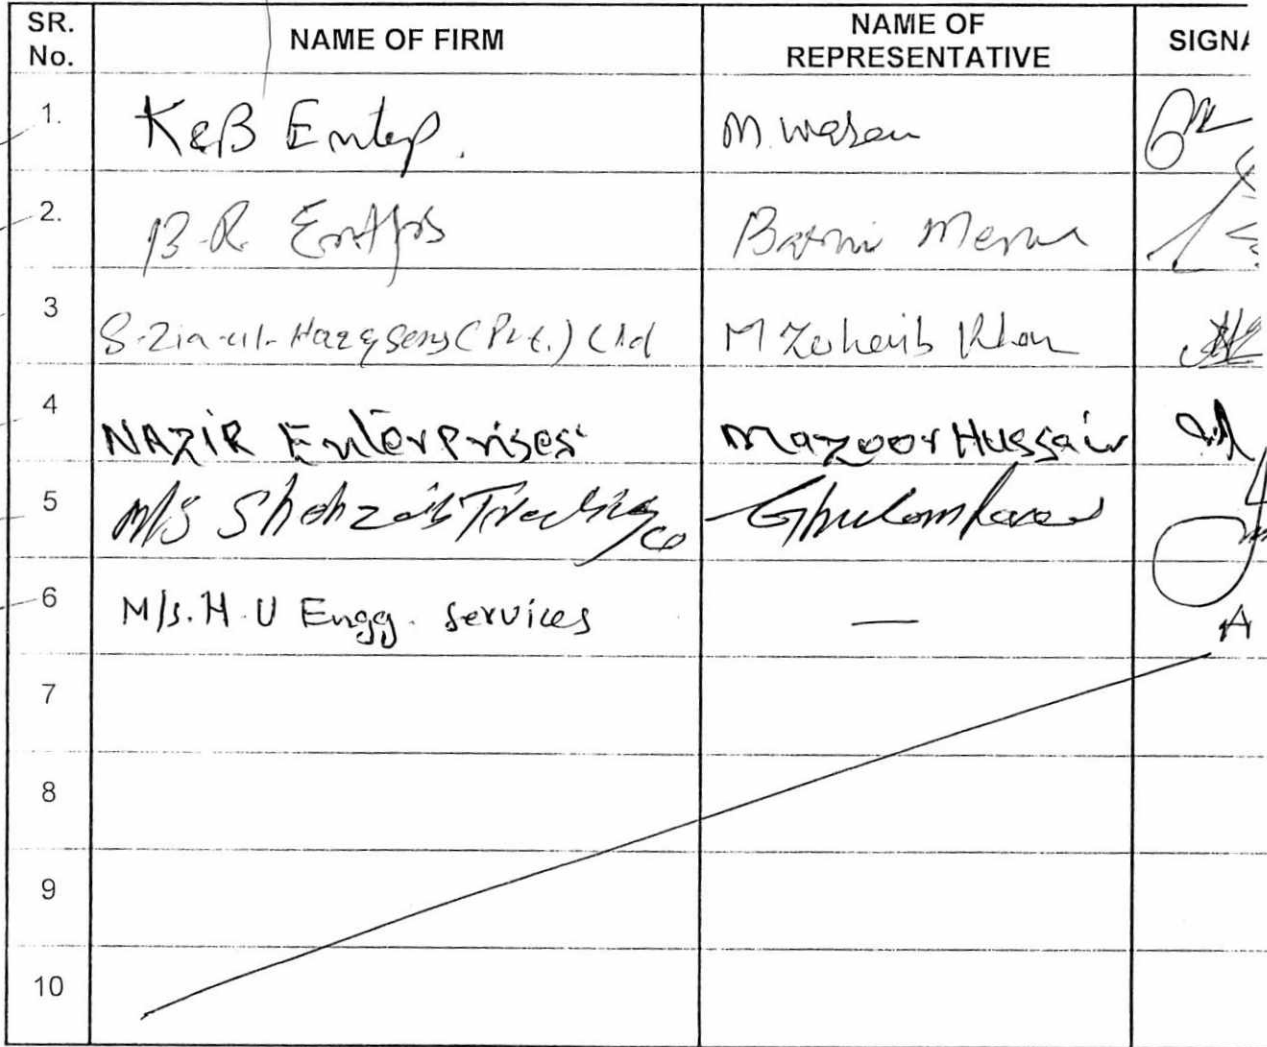 SR. No. NAME OF FIRM NAME OF REPRESENTATIVE SIGNA
1. K&B Entep. M. Wasen
2. B.R. Entps
3 S-Zia-ul-Haq & Sons (Pvt.) Ltd M Zohaib Khan
4 NAZIR Enterprises Mazoor Hussain
5 M/S Shahzaib Trading Co Ghulam
6 M/s. H.U Engg. Services —
7
8
9
10